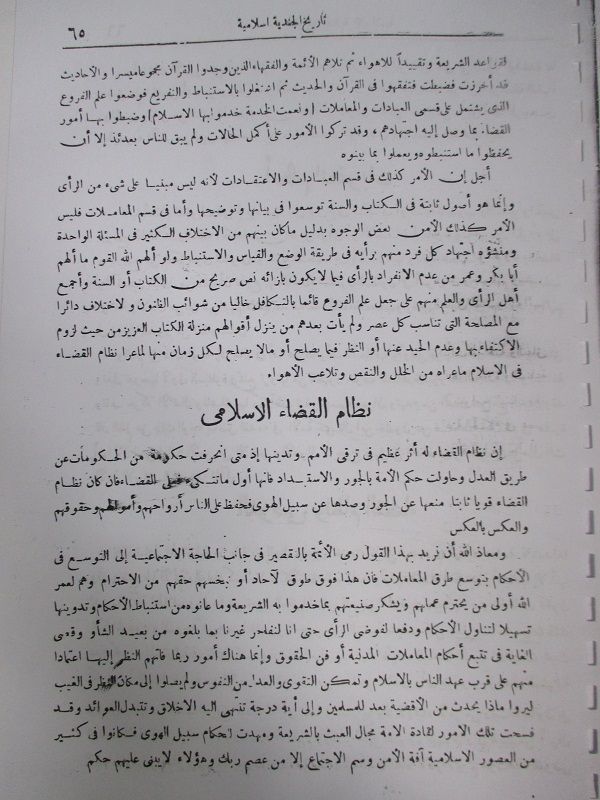 ٦٥
تاريخ الجندية اسلامية
لقواعد الشريعة وتقييداً للاهواء ثم تلاهم الأئمة والفقهاء الذين وجدوا القرآن مجموعا ميسرا والأحاديث
قد أحرزت فضبطت فتفقهوا فى القرآن والحديث ثم اشتغلوا بالاستنباط والتفريع فوضعوا علم الفروع
الذى يشتمل على قسمى العبادات والمعاملات (ونعمت الخدمة خدموا بها الاسلام) وضبطوا بها أمور
القضاء بما وصل إليه اجتهادهم، وقد تركوا الأمور على أكمل الحالات ولم يبق للناس بعدئذ إلا أن
يحفظوا ما استنبطوه ويعملوا بما بينوه
أجل إن الأمر كذلك فى قسم العبادات والاعتقادات لأنه ليس مبنيا على شىء من الرأى
وإنما هو أصول ثابتة فى الكتاب والسنة توسعوا فى بيانها وتوضيحها وأما فى قسم المعاملات فليس
الأمر كذلك الأمن بعض الوجوه بدليل ماكان بينهم من الاختلاف الكثير فى المسئلة الواحدة
ومنشؤه اجتهاد كل فرد منهم برأيه فى طريقة الوضع والقياس والاستنباط ولو ألهم الله القوم ما ألهم
أبا بكر وعمر من عدم الانفراد بالرأى فيما لا يكون بازائه نص صريح من الكتاب أو السنة وأجمع
أهل الرأى والعلم منهم على جعل علم الفروع قائما بالتكافل خاليا من شوائب الظنون والاختلاف دائرا
مع المصلحة التى تناسب كل عصر ولم يأت بعدهم من ينزل أقوالهم منزلة الكتاب العزيز من حيث لزوم
الاكتفاء بها وعدم الحيد عنها أو النظر فيما يصلح أو مالا يصلح لكل زمان منها لما عرا نظام القضاء
فى الاسلام ماعراه من الخلل والنقص وتلاعب الأهواء.
نظام القضاء الاسلامى
إن نظام القضاء له أثر عظيم فى ترقى الأمم وتدينها إذ متى انحرفت حكومة من الحكومات عن
طريق العدل وحاولت حكم الأمة بالجور والاستبداد فانها أول ماتتكىء على القضاء فان كان نظام
القضاء قويا ثابتا منعها عن الجور وصدها عن سبيل الهوى فحفظ على الناس أرواحهم وأموالهم وحقوقهم
والعكس بالعكس
ومعاذ الله أن نريد بهذا القول رمى الأئمة بالتقصير فى جانب الحاجة الاجتماعية إلى التوسع فى
الأحكام بتوسع طرق المعاملات فان هذا فوق طوق الآحاد أو نبخسهم حقهم من الاحترام وهم لعمر
الله أولى من يحترم عملهم ويشكر صنيعتهم بما خدموا به الشريعة وما عانوه من استنباط الأحكام وتدوينها
تسهيلا لتناول الأحكام ودفعا لفوضى الرأى حتى انا لنفاخر غيرنا بما بلغوه من بعيد الشأو وقصى
الغاية فى تتبع أحكام المعاملات المدنية أو فن الحقوق وإنما هناك أمور ربما فاتهم النظر إليها اعتمادا
منهم على قرب عهد الناس بالاسلام وتمكن التقوى والعدل من النفوس ولم يصلوا إلى مكان النظر فى الغيب
ليروا ماذا يحدث من الأقضية بعد للمسلمين وإلى أية درجة تنتهى اليه الاخلاق وتتبدل العوائد وقد
فسحت تلك الامور لقادة الامة مجال العبث بالشريعة ومهدت للحكام سبيل الهوى فكانوا فى كثير
من العصور الاسلامية آفة الأمن وسم الاجتماع إلا من عصم ربك وهؤلاء لا يبنى عليهم حكم